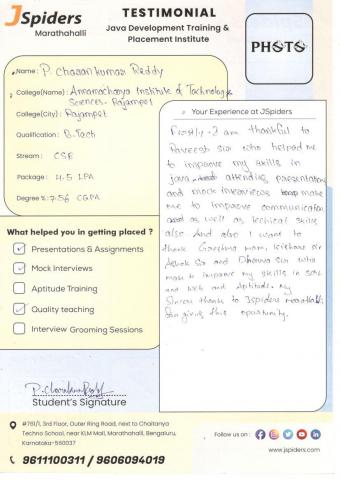 JSpiders
Marathahalli
TESTIMONIAL
Java Development Training &
Placement Institute
PHOTO
Name: P. Charan kumar Reddy
College(Name): Annamacharya Institute of Technology &
Sciences - Rajampet
College(City): Rajampet
Qualification: B.Tech
Stream: CSE
Package: 4.5 LPA
Degree %: 7.56 CGPA
Your Experience at JSpiders
Firstly, I am thankful to
Praveesh sir who helped me
to improve my skills in
java attending presentations
and mock interviews make
me to improve communication
as well as techical skills
also And also I want to
thank mam, kishore sir
Ashok Sir and sir who
make to improve my skills in
and web and Aptitude. My
Sincere thanks to Jspiders
for giving this opportunity.
What helped you in getting placed ?
Presentations & Assignments
Mock Interviews
Aptitude Training
Quality teaching
Interview Grooming Sessions
Student's Signature
#761/1, 3rd Floor, Outer Ring Road, next to Chaitanya
Techno School, near KLM Mall, Marathahalli, Bengaluru,
Karnataka-560037
9611100311 / 9606094019
Follow us on :
www.jspiders.com